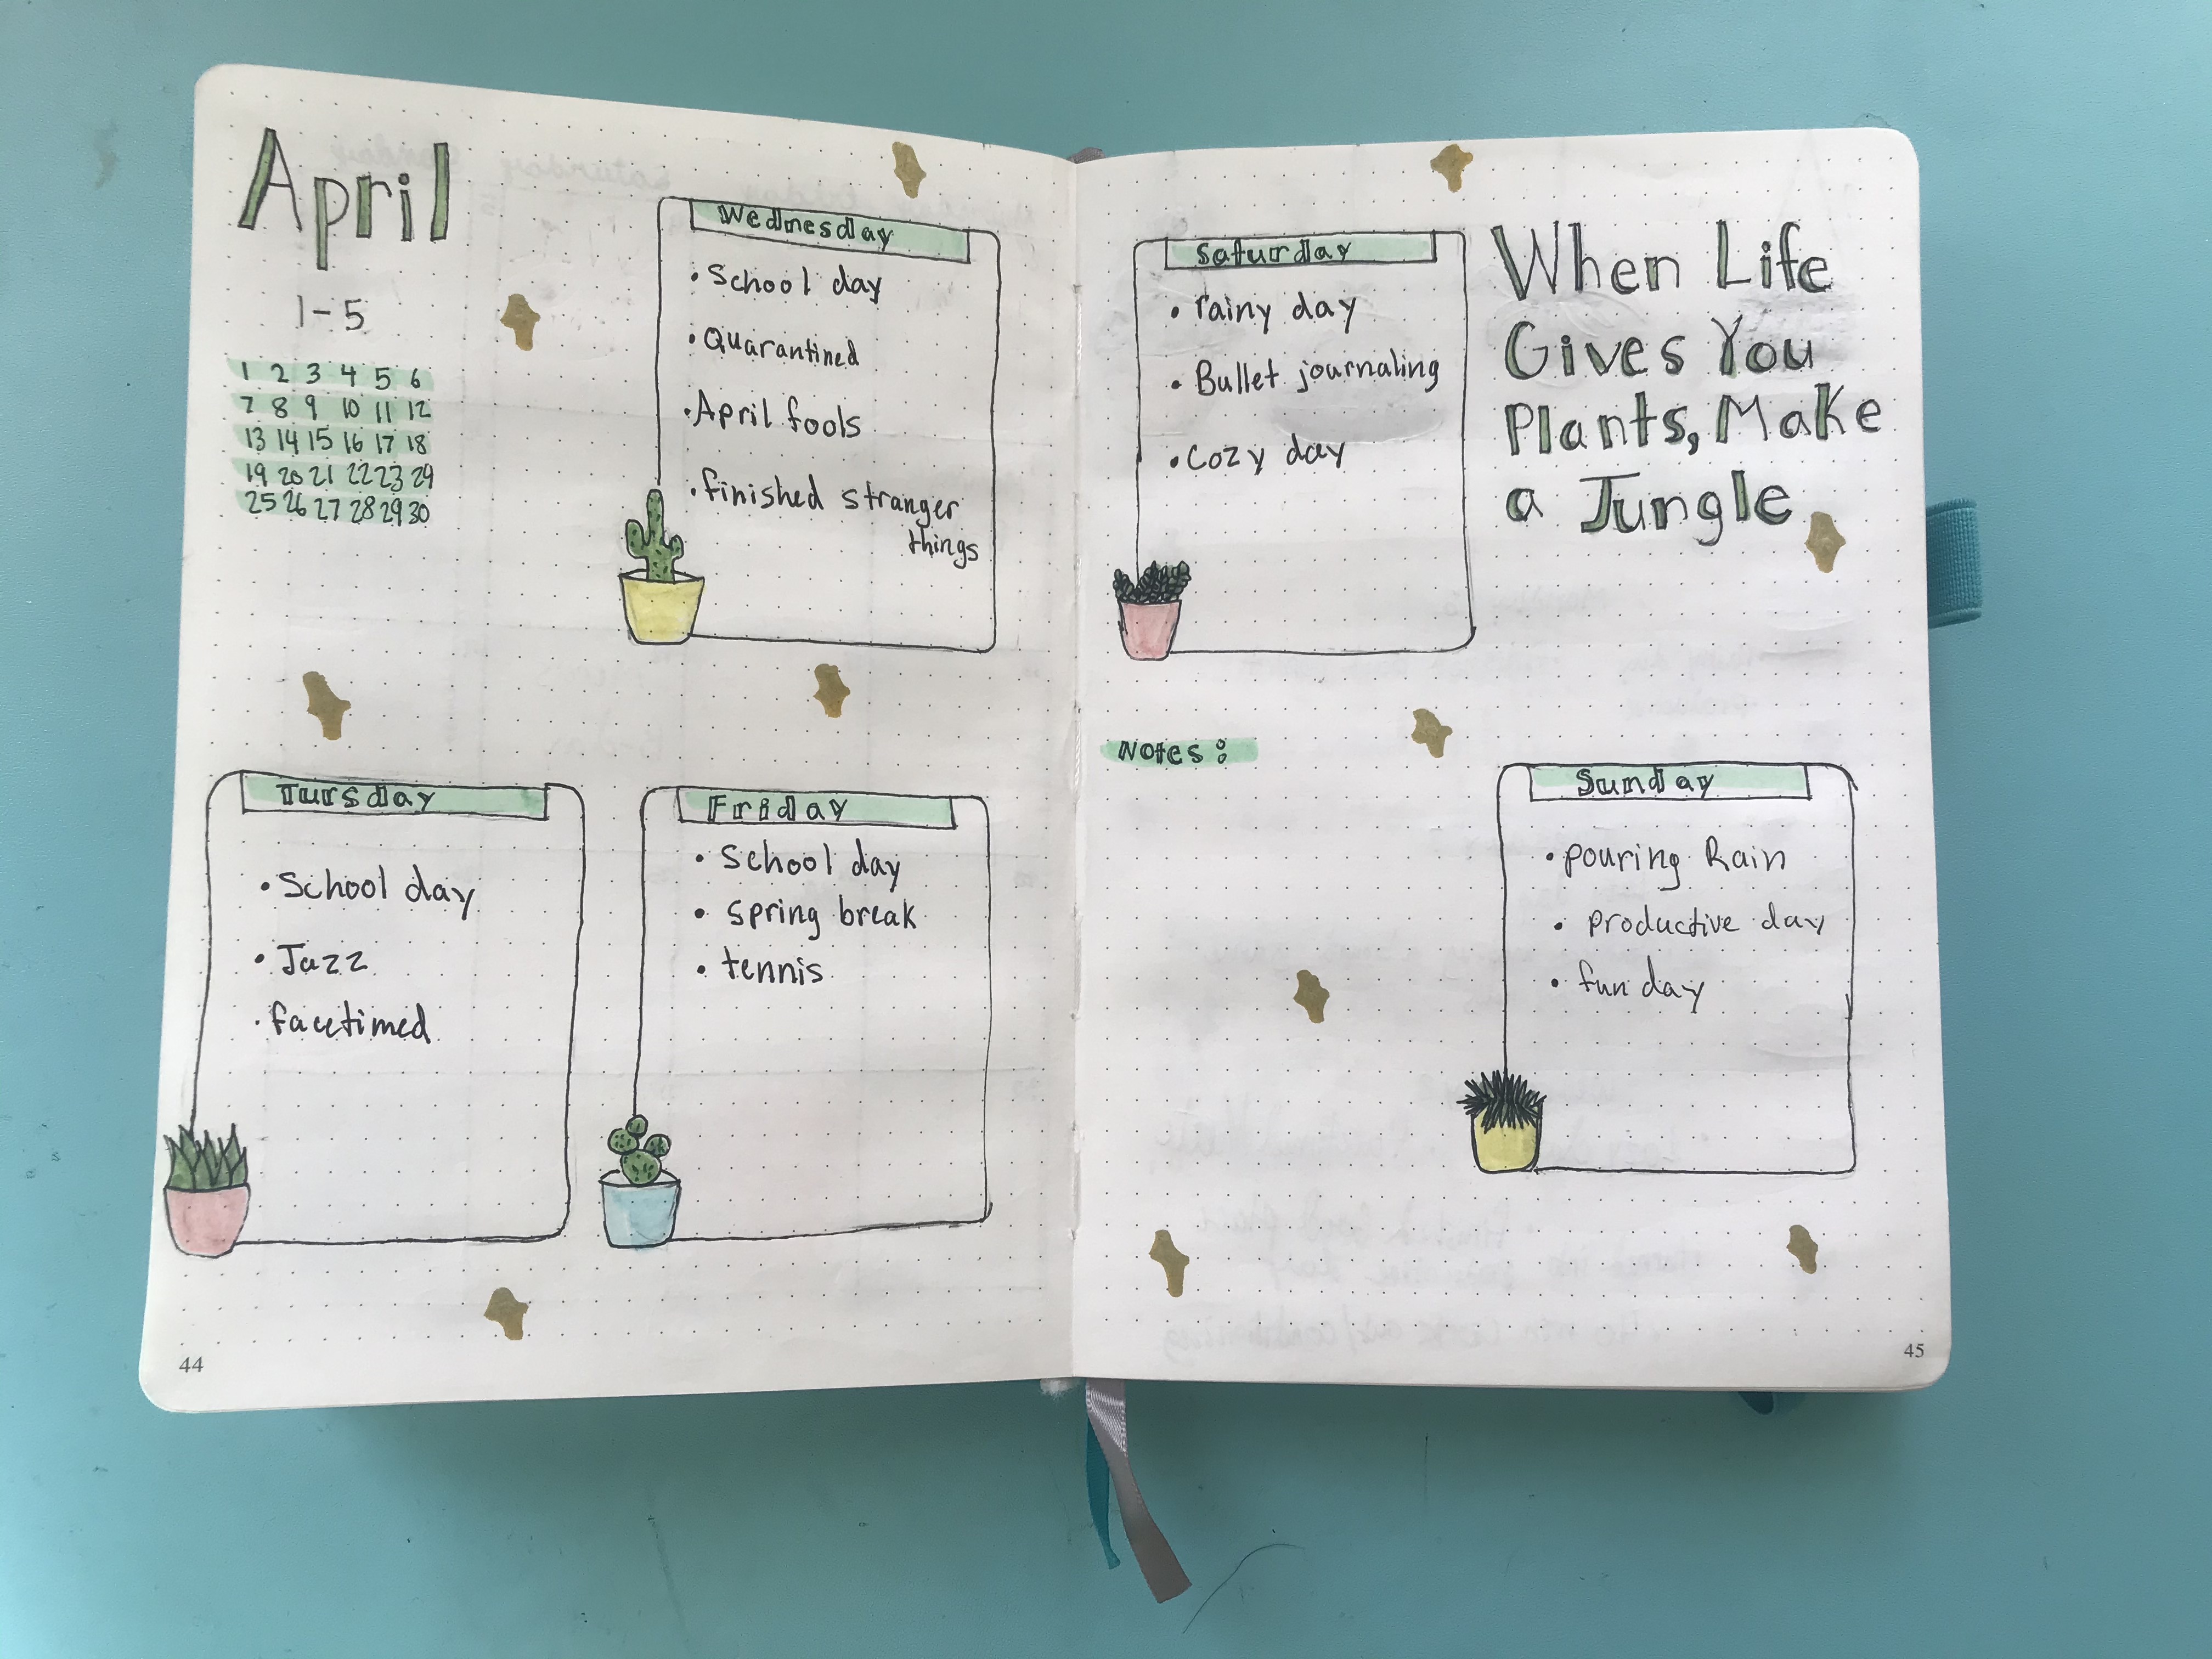 April
1-5
1 2 3 4 5 6
7 8 9 10 11 12
13 14 15 16 17 18
19 20 21 22 23 29
25 26 27 28 29 30
Wednesday
• School day
• Quarantined
• April fools
• finished stranger
things
Tursday
• School day
• Jazz
• facetimed
Friday
• School day
• spring break
• tennis
44
Saturday
• rainy day
• Bullet journaling
• cozy day
When Life
Gives You
Plants, Make
a Jungle
Notes:
Sunday
• pouring Rain
• productive day
• fun day
45